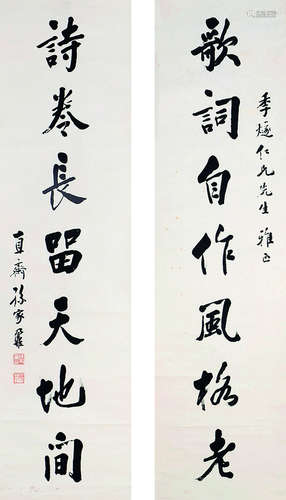 季燧仁兄先生雅正
歌詞自作風格老
詩卷長留天地間
直齋孫家鼐